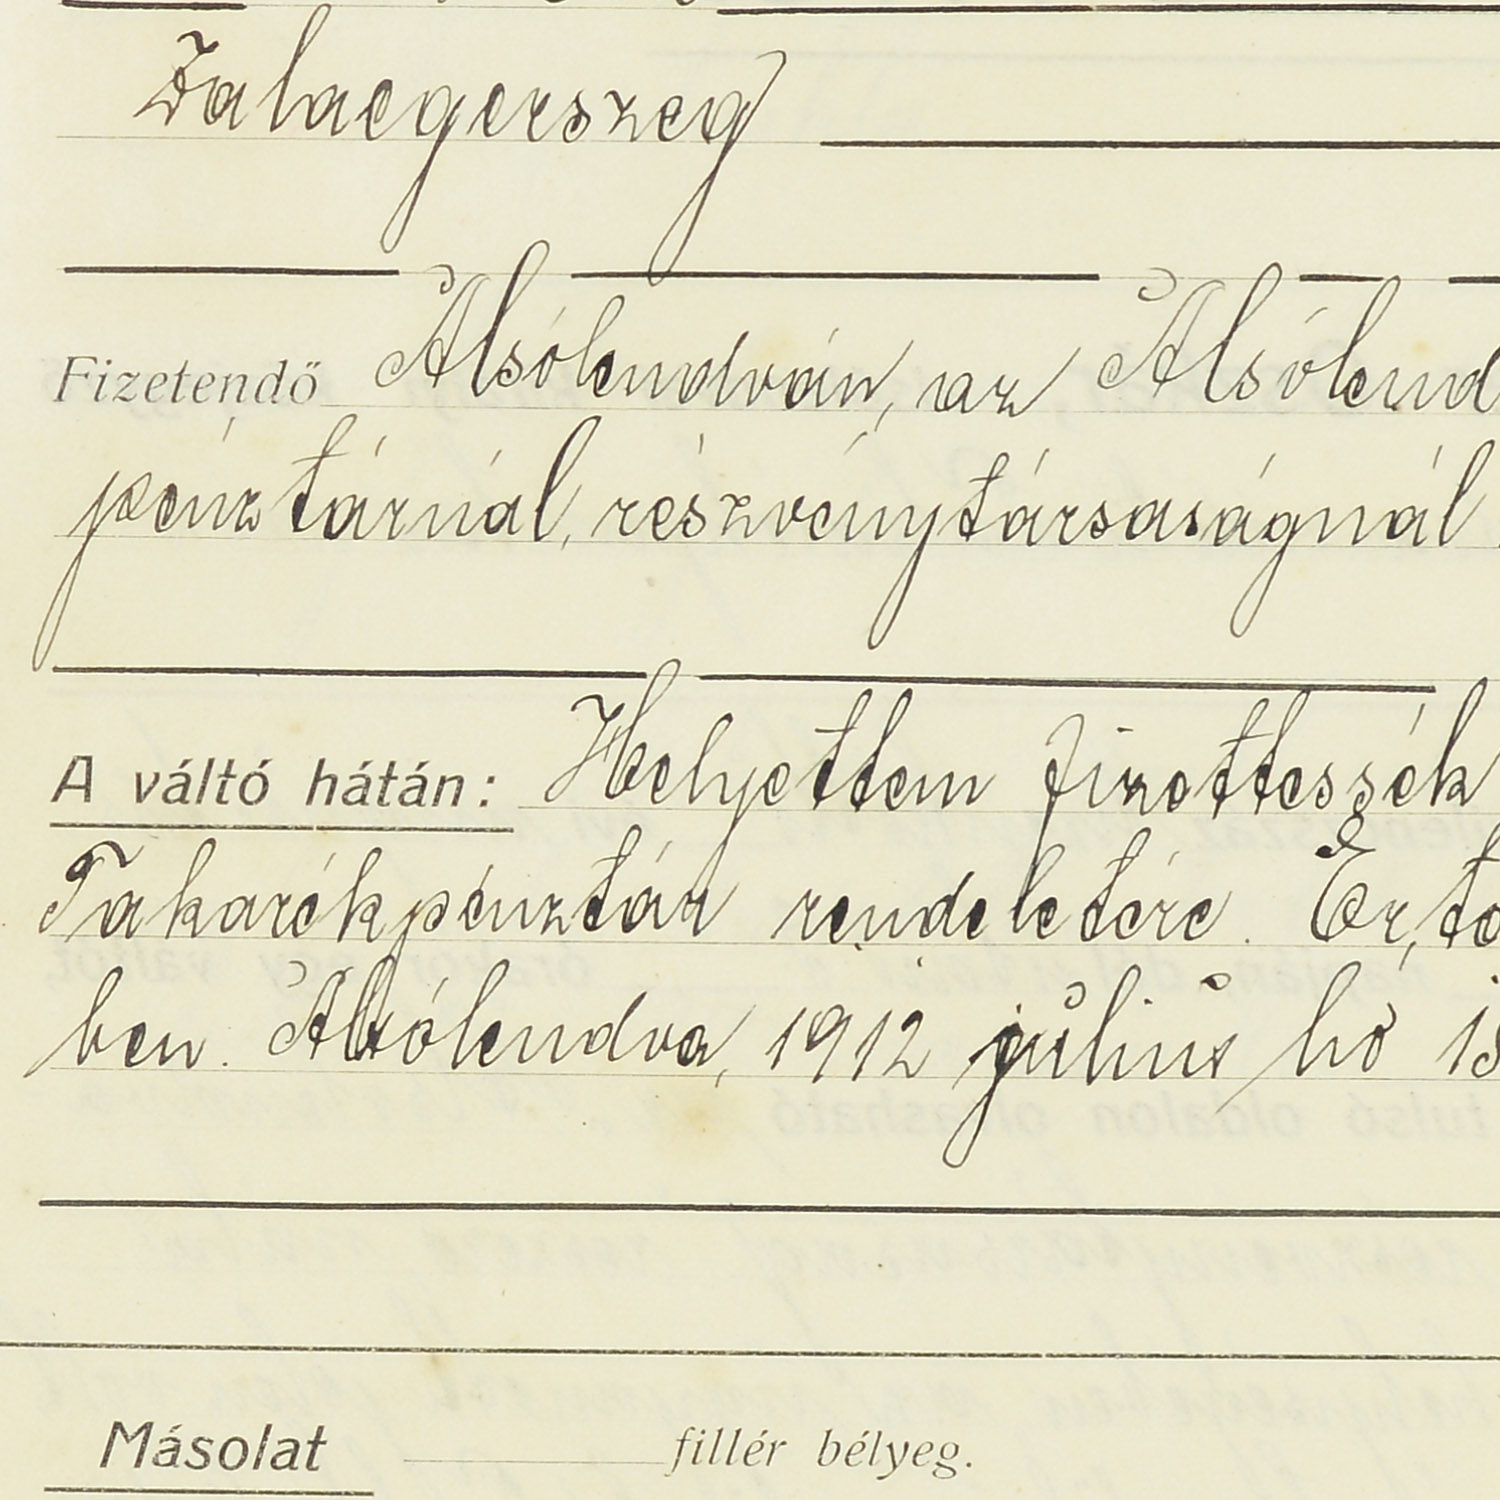 Zalaegerszeg
Fizetendő Alsólendván, az Alsólend
pénztárnál, részvénytársaságnál
A váltó hátán: Helyettem fizettessék
Takarékpénztár rendeletére. Ért, 
ben. Alsólendva, 1912 július hó 15
Másolat fillér bélyeg.